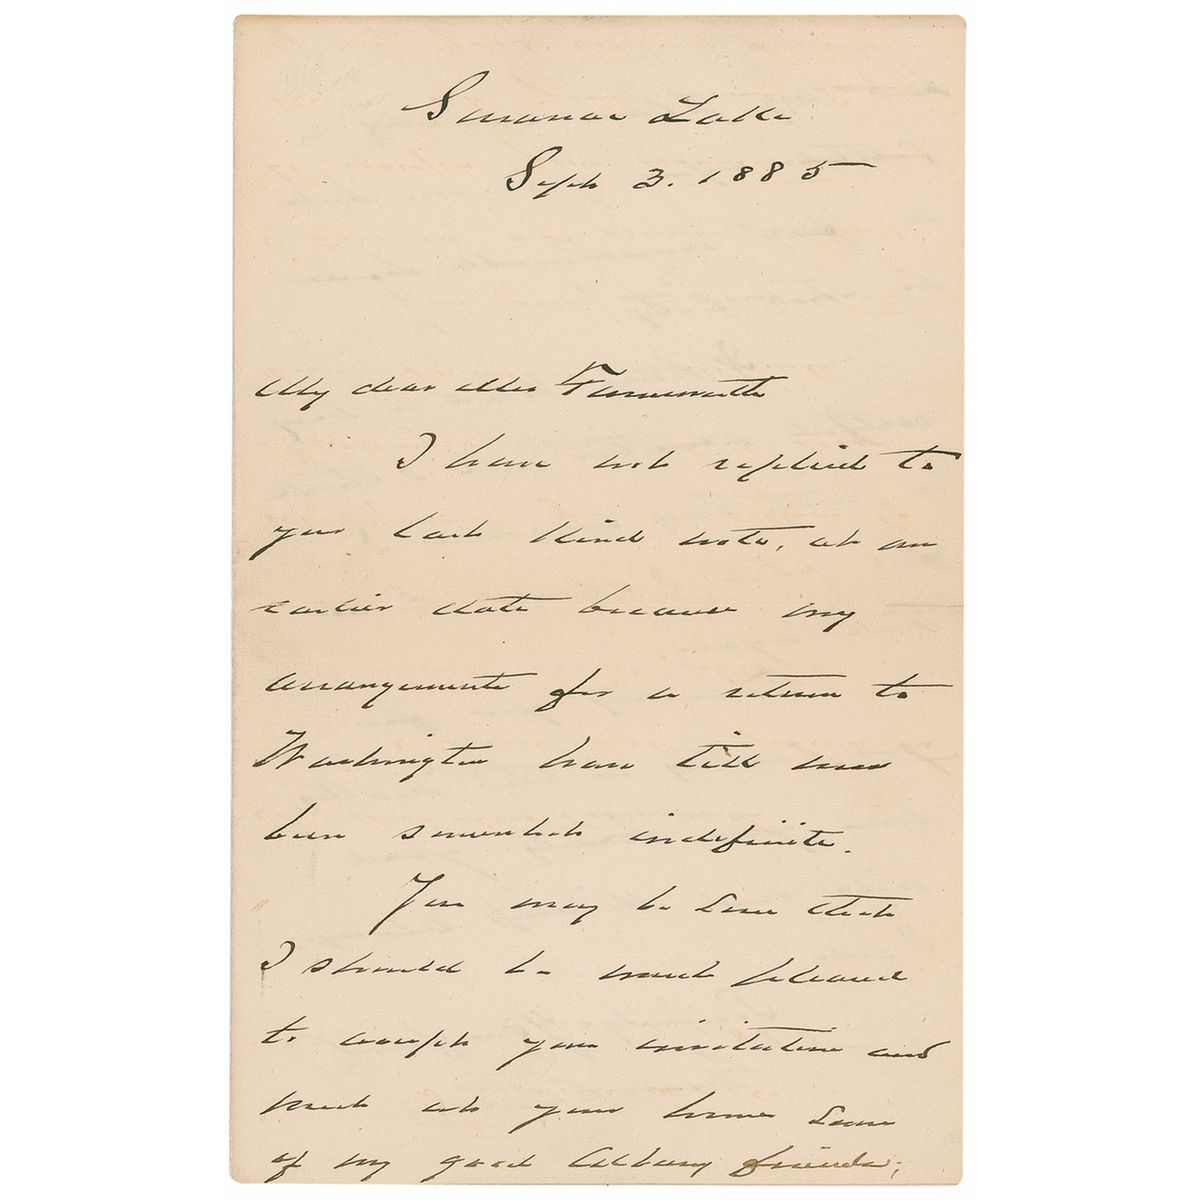 Saranac Lake
Sept 3. 1885
My dear Mrs Farnsworth
I have not replied to
your last kind note, at an
earlier date because my
arrangements for a return to
Washington have till now
been somewhat indefinite.
You may be sure that
I should be most pleased
to accept your invitation and
meet at your house some
of my good Albany friends;